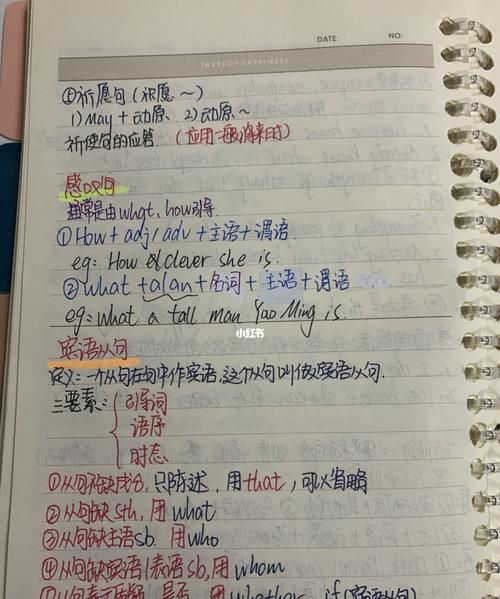 DATE: NO:
TASTE OF HAPPINESS
祈愿句（祝愿～）
1) May + 动原、 2) 动原～
祈使句的应答.（应用一般将来时）
感叹句
通常是由what, how引导.
① How + adj/adv + 主语 + 谓语.
eg: How clever she is.
② what + a/an + 名词 + 主语 + 谓语
eg: what a tall man Yao Ming is.
小红书
宾语从句
定义：一个从句在句中作宾语,这个从句叫做宾语从句.
三要素：
引导词
语序
时态
①从句不缺成分,只陈述,用that,可以省略
②从句缺sth,用what
③从句缺主语sb.用who
④从句缺宾语/表语sb,用whom
是否 用whether, if (宾语从句)